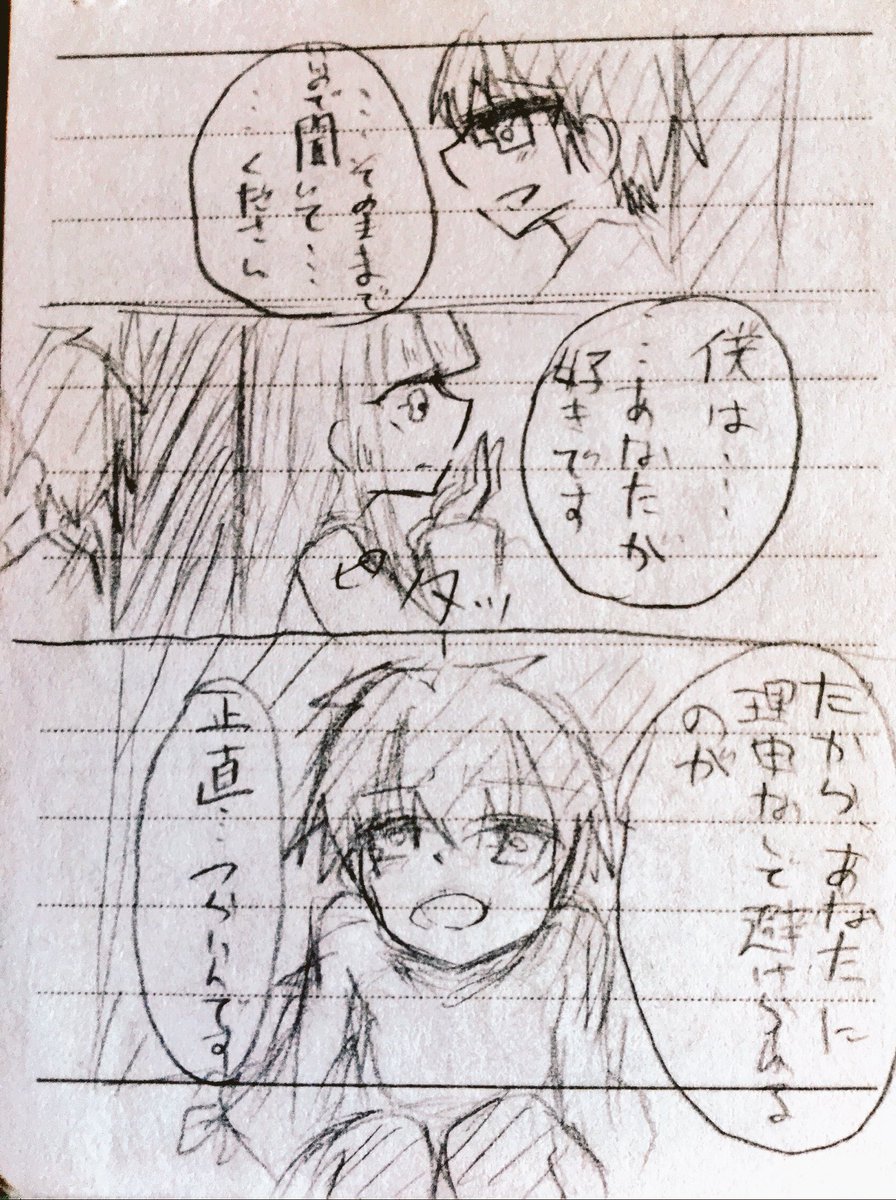 …そのままで
いいので聞いて…
…ください
僕は…
…あなたが
好きです
ピタッ
だからあなたに
理由なしで避けられる
のが
正直…つらいんです